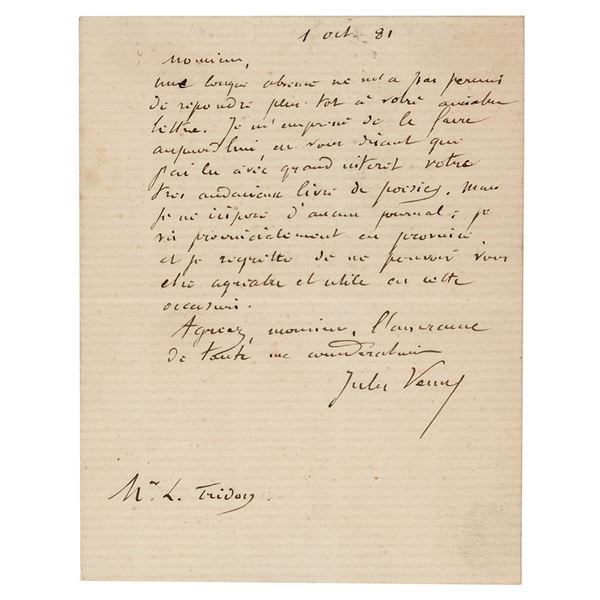 1 oct. 81
Monsieur,
une longue absence ne m'a pas permis
de répondre plus tôt à votre aimable
lettre. Je m'empresse de le faire
aujourd'hui, en vous disant que
j'ai lu avec grand intérêt votre
très audacieux livre de poésies. Mais
je ne dispose d'aucun journal ; je
vis provincialement en province,
et je regrette de ne pouvoir vous
être agréable et utile en cette
occasion.
Agréez, monsieur, l'assurance
de toute ma considération
Jules Verne
Mr L. Tridon